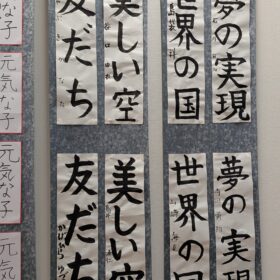 夢の実現
世界の国
美しい空
友だち
元気な子
な子
夢の実現
世界の国
美しい空
友だち
元気な子
元気な子